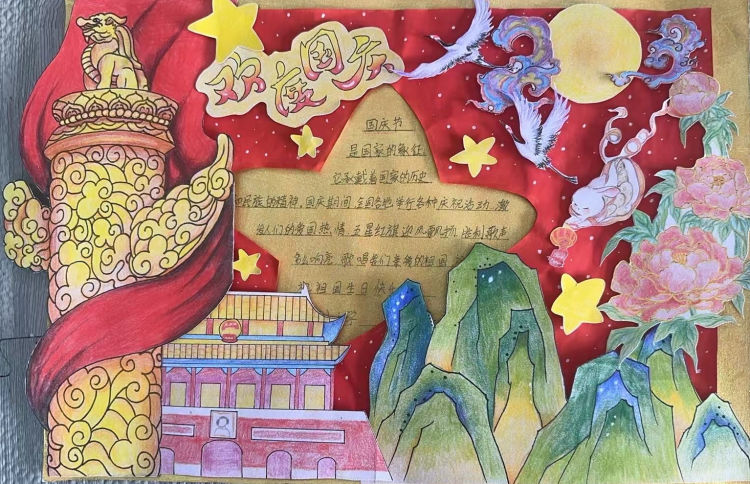 欢度国庆
国庆节
是国家的象征
它承载着国家的历史
和民族的精神,国庆期间,全国各地举行各种庆祝活动,激
发人们的爱国热情,五星红旗迎风飘扬,胜利歌声
多么响亮,歌唱我们亲爱的祖国
祝祖国生日快